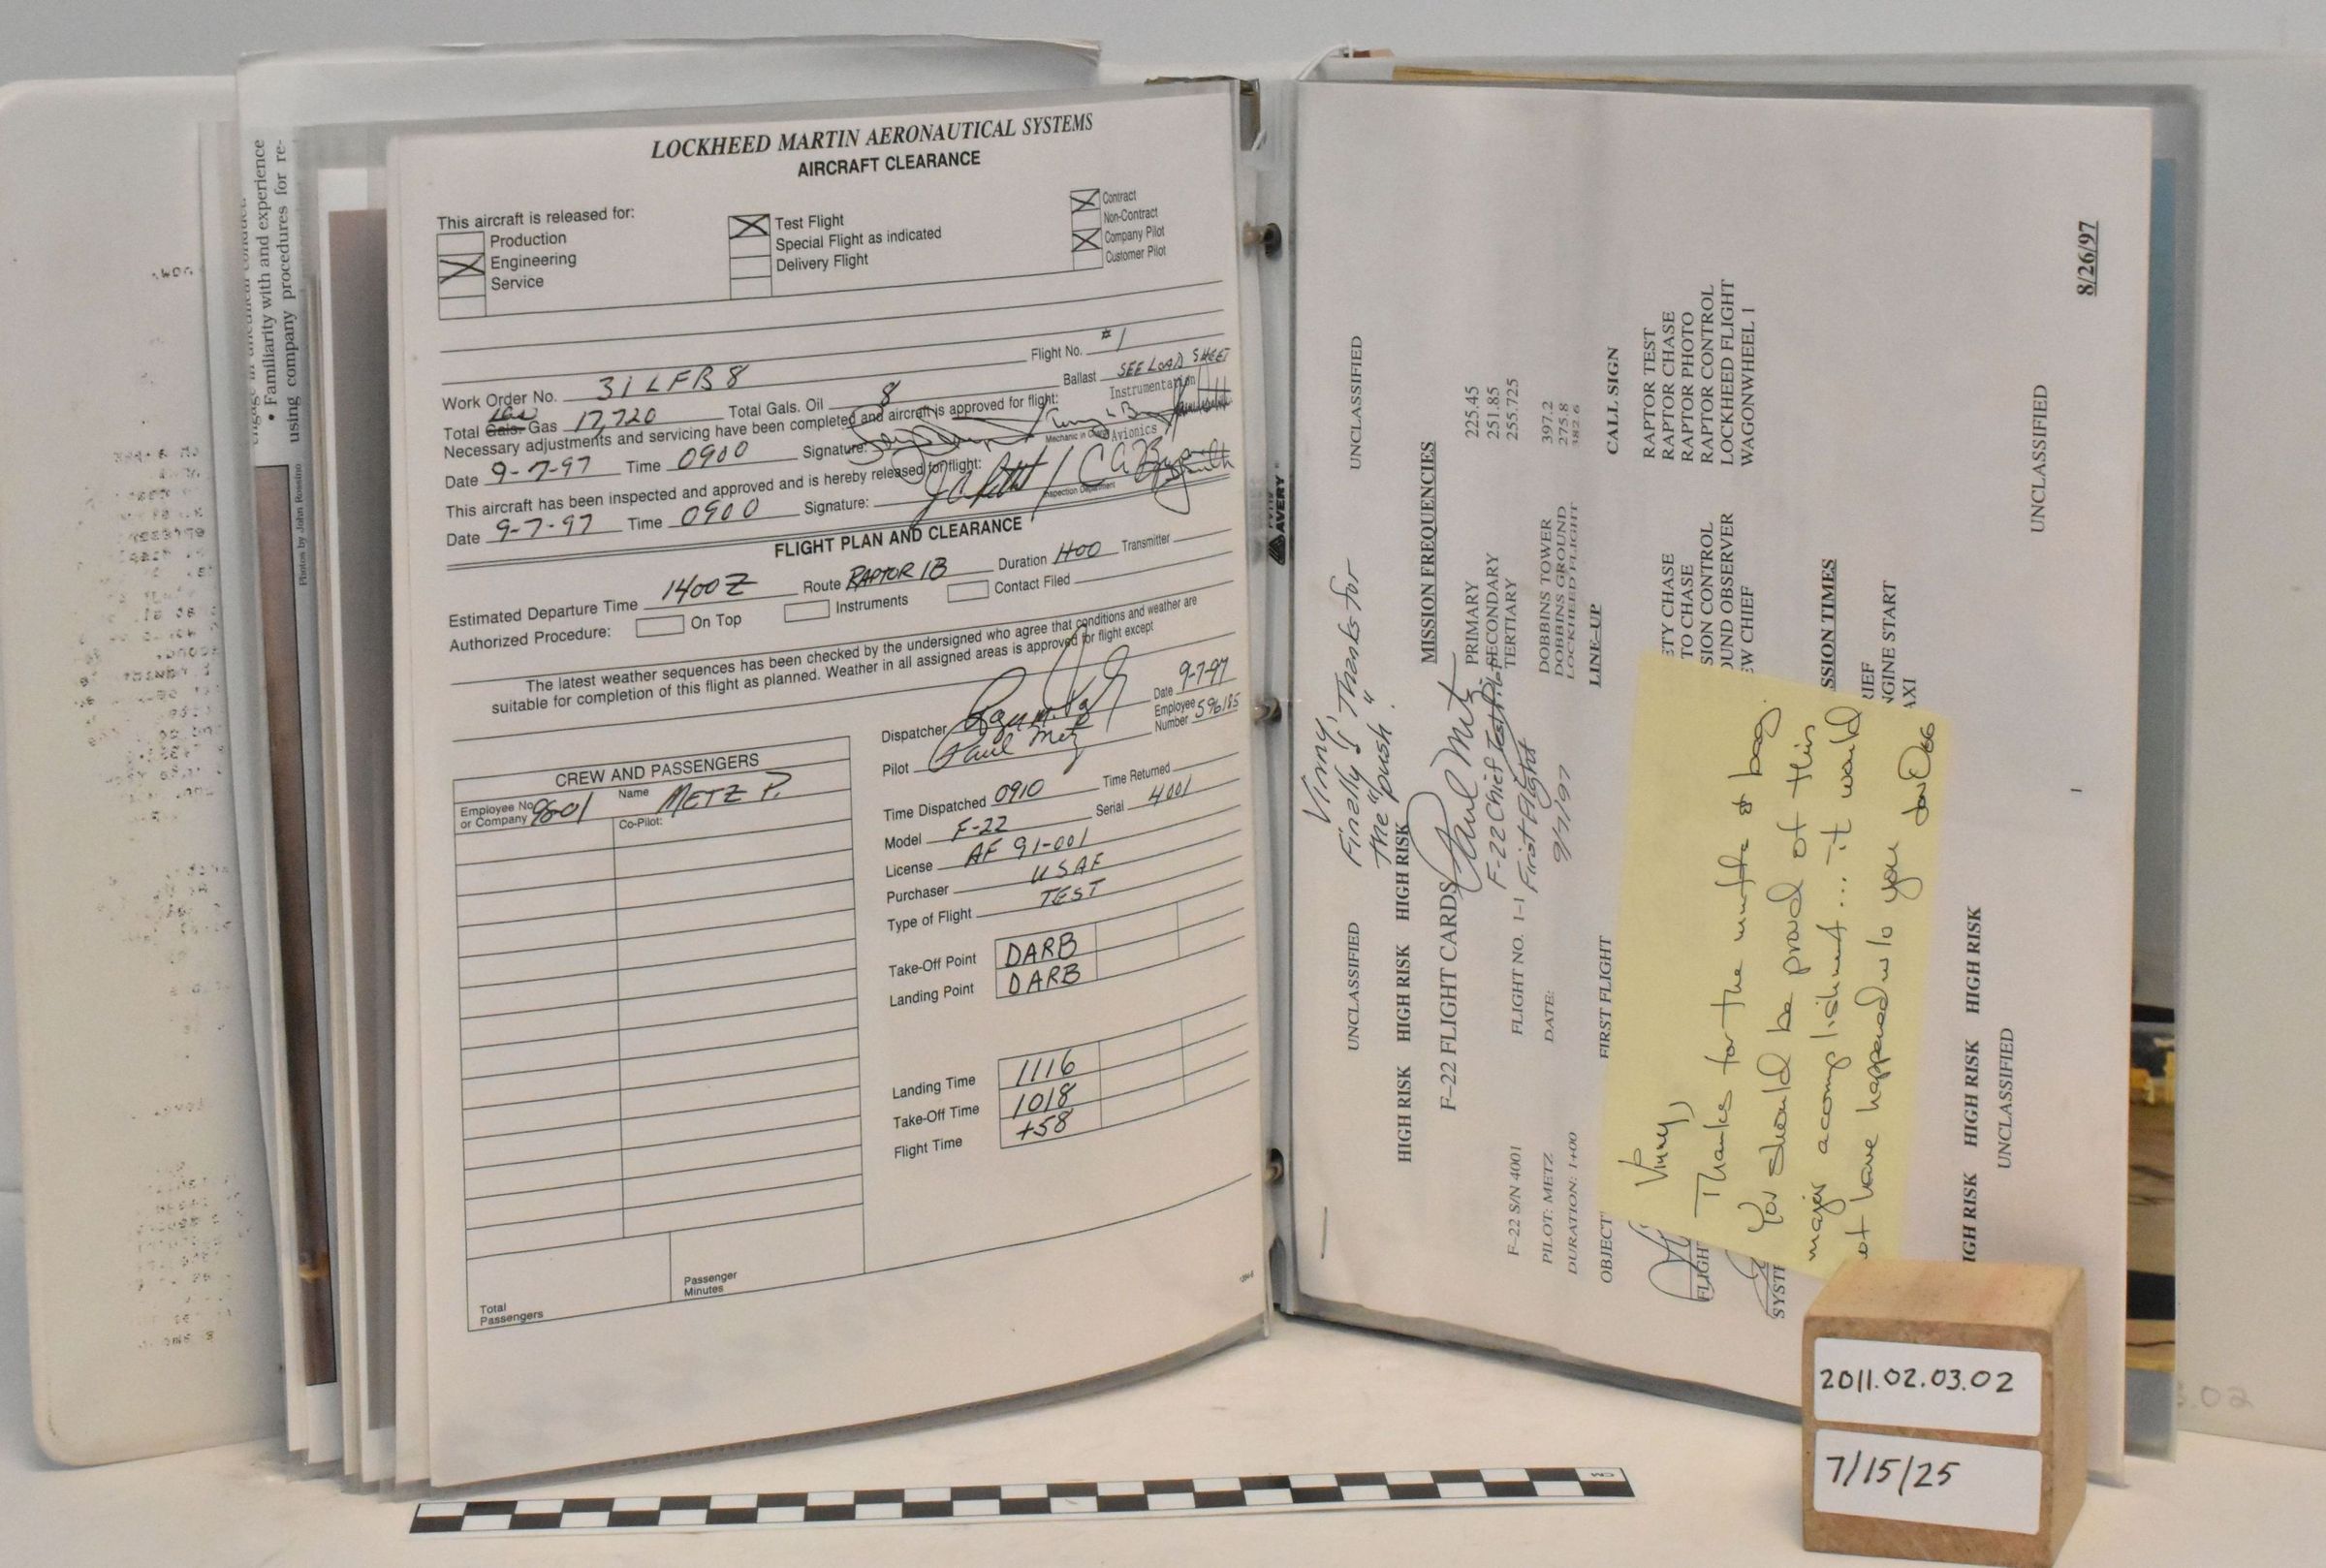 • Familiarity with and experience
using company procedures for re-
Photos by John Rossino
LOCKHEED MARTIN AERONAUTICAL SYSTEMS
AIRCRAFT CLEARANCE
This aircraft is released for:
Production
Engineering
Service
Test Flight
Special Flight as indicated
Delivery Flight
Contract
Non-Contract
Company Pilot
Customer Pilot
Flight No. #1
Work Order No. 31LFB8
Ballast SEE LOAD SHEET
Total Gals. Gas 17,720 Total Gals. Oil 8
Instrumentation
Necessary adjustments and servicing have been completed and aircraft is approved for flight:
Date 9-7-97 Time 0900 Signature:
Mechanic in Charge
Avionics
This aircraft has been inspected and approved and is hereby released for flight:
Date 9-7-97 Time 0900 Signature:
Inspection Department
FLIGHT PLAN AND CLEARANCE
Estimated Departure Time 1400Z Route RAPTOR 1B Duration 1+00 Transmitter
Authorized Procedure: On Top Instruments Contact Filed
The latest weather sequences has been checked by the undersigned who agree that conditions and weather are
suitable for completion of this flight as planned. Weather in all assigned areas is approved for flight except
Dispatcher Date 9-7-97
Pilot Paul Metz Employee Number 596185
CREW AND PASSENGERS
Employee No. or Company Name METZ P.
Co-Pilot:
Total Passengers
Passenger Minutes
Time Dispatched 0910 Time Returned
Model F-22 Serial 4001
License AF 91-001
Purchaser USAF
Type of Flight TEST
Take-Off Point DARB
Landing Point DARB
Landing Time 1116
Take-Off Time 1018
Flight Time +58
AVERY
UNCLASSIFIED UNCLASSIFIED
Vinny,
Finally! Thanks for
the "push".
Paul Metz
F-22 Chief Test Pilot
First Flight
9/7/97
HIGH RISK HIGH RISK HIGH RISK
F-22 FLIGHT CARDS
F-22 S/N 4001 FLIGHT NO. 1-1
PILOT: METZ DATE:
DURATION: 1+00
OBJECT FIRST FLIGHT
FLIGHT
SYST
MISSION FREQUENCIES
PRIMARY 225.45
SECONDARY 251.85
TERTIARY 255.725
DOBBINS TOWER 397.2
DOBBINS GROUND 275.8
LOCKHEED FLIGHT 382.6
LINE-UP CALL SIGN
RAPTOR TEST
ETY CHASE RAPTOR CHASE
TO CHASE RAPTOR PHOTO
SION CONTROL RAPTOR CONTROL
OUND OBSERVER LOCKHEED FLIGHT
EW CHIEF WAGONWHEEL 1
SSION TIMES
RIEF
NGINE START
AXI
Vinny,
Thanks for the
You should be proud of this
major accomplishment ... it would
not have happened w/o you
HIGH RISK HIGH RISK HIGH RISK
UNCLASSIFIED UNCLASSIFIED
1
8/26/97
2011.02.03.02
7/15/25
CM